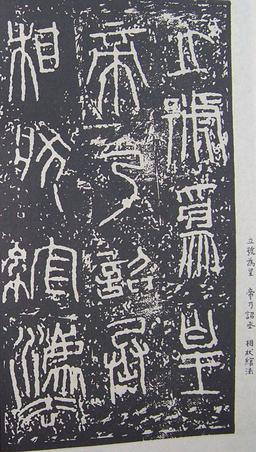 立號為皇
帝乃詔丞
相狀綰灋
立號為皇 帝乃詔丞 相狀綰法